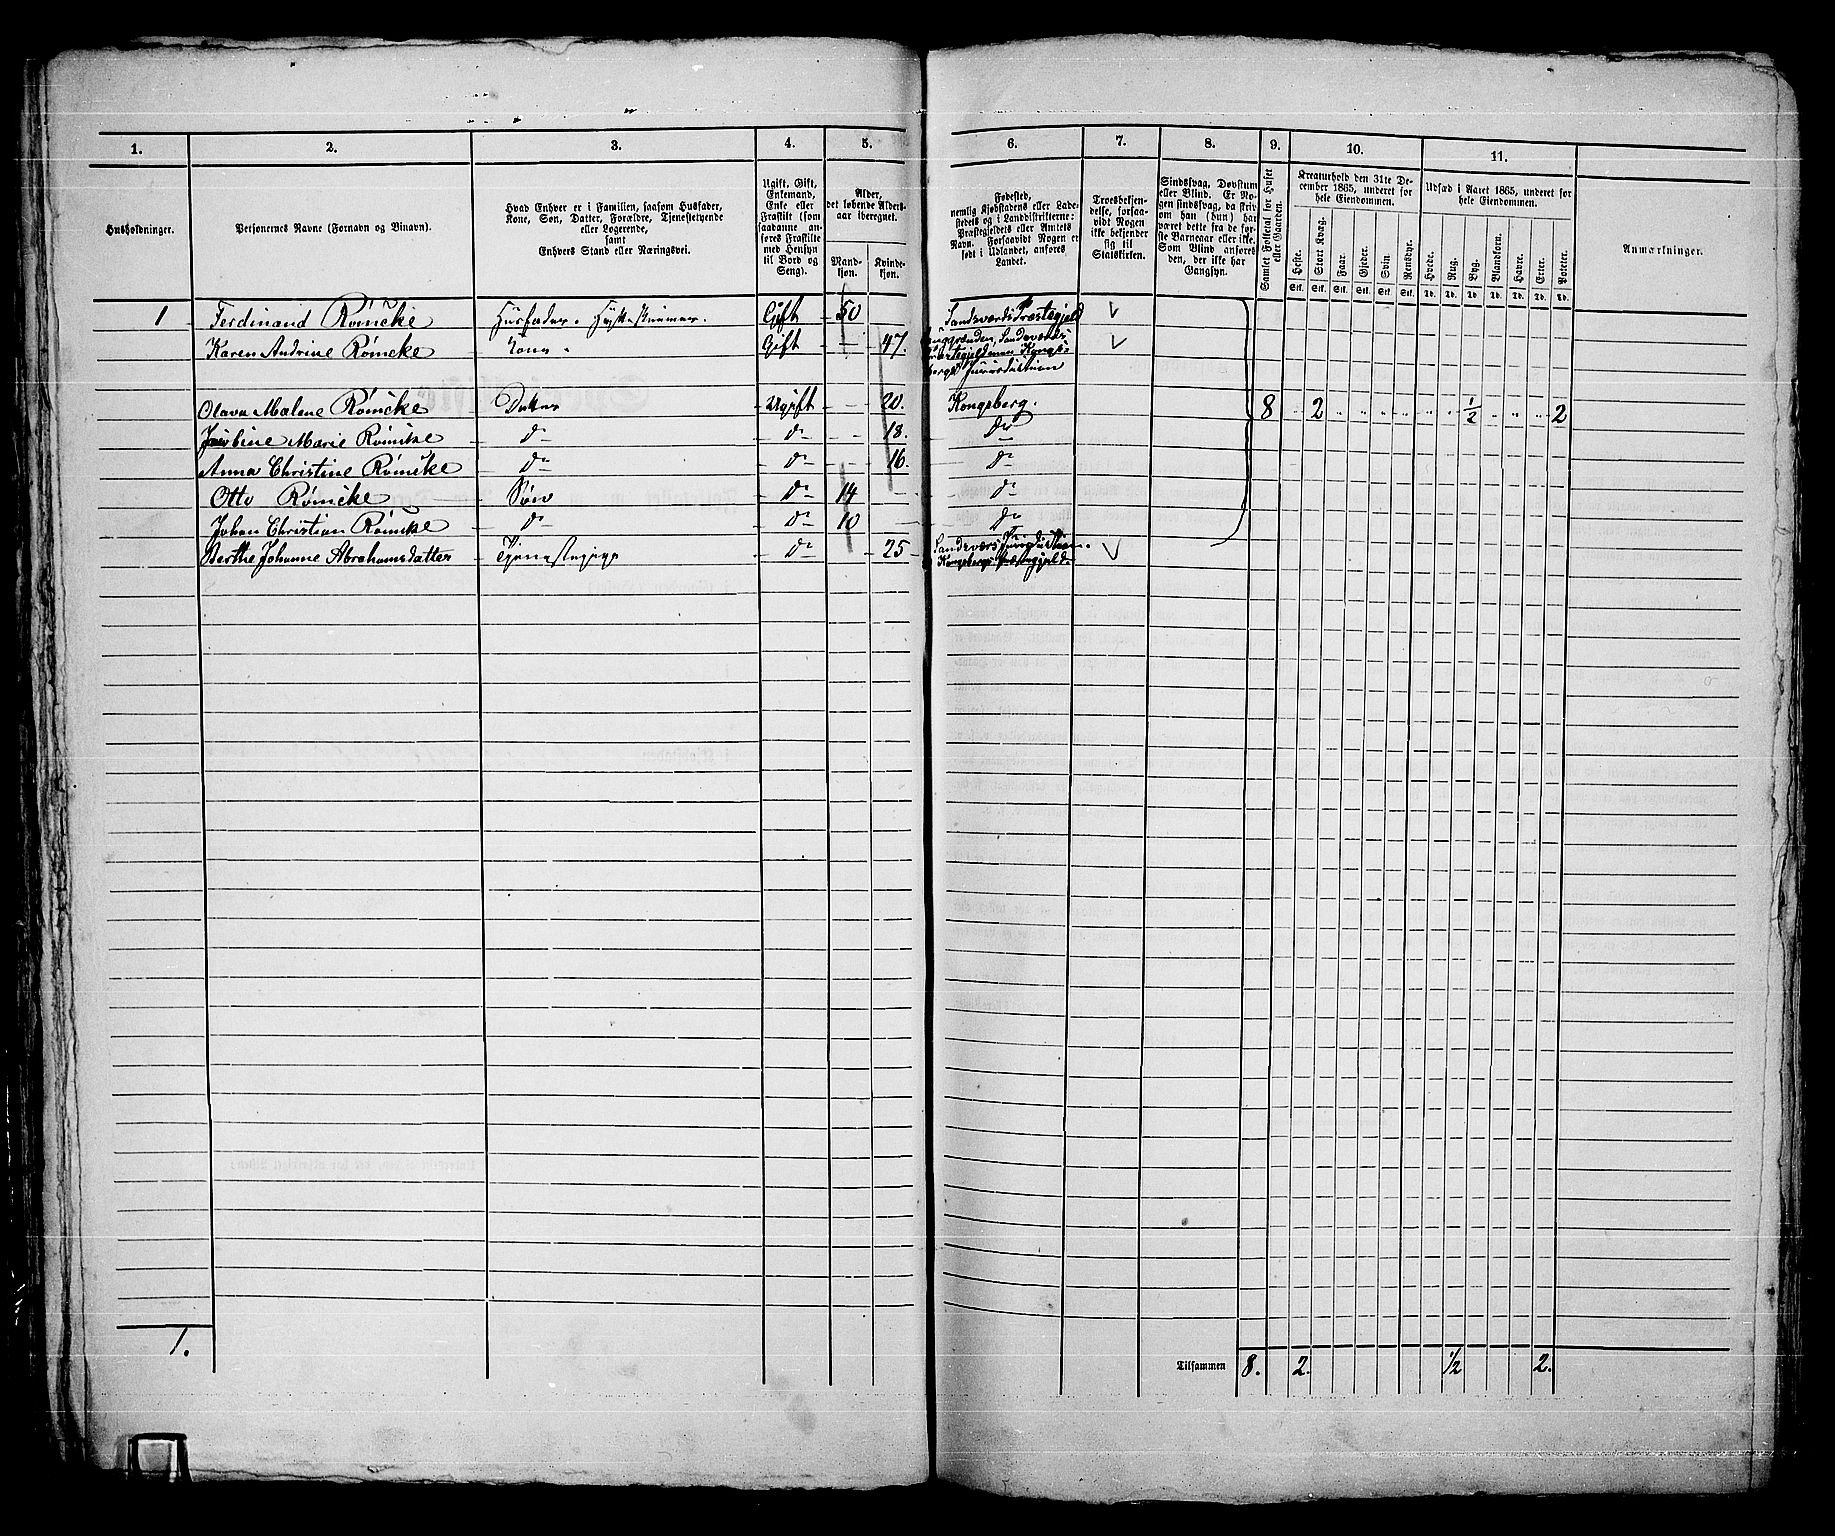 1. 2. 3. 4. 5. 6. 7. 8. 9. 10. 11.
Husholdninger.
Personernes Navne (Fornavn og Binavn).
Hvad Enhver er i Familien, saasom Husfader,
Kone, Søn, Datter, Forældre, Tjenestetyende
eller Logerende,
samt
Enhvers Stand eller Næringsvei.
Ugift, Gift,
Enkemand,
Enke eller
Fraskilt (som
saadanne an-
føres Fraskilte
med Hensyn
til Bord og
Seng).
Alder,
det løbende Alders-
aar iberegnet.
Mand-
kjøn.
Kvinde-
kjøn.
Fødested,
nemlig Kjøbstadens eller Lade-
stedets og i Landdistrikterne:
Præstegjeldets eller Amtets
Navn. Forsaavidt Nogen er
født i Udlandet, anføres
Landet.
Troesbekjen-
delse, forsaa-
vidt Nogen
ikke bekjender
sig til
Statskirken.
Sindssvag, Døvstum
eller Blind. Er No-
gen sindssvag, da skriv
om han (hun) har
været dette fra de før-
ste Barneaar eller ikke.
Som Blind anføres
den, der ikke har
Gangsyn.
Samlet Folketal for Huset
eller Gaarden.
Kreaturhold den 31te De-
cember 1865, underet for
hele Eiendommen.
Heste. Stort Kvæg. Faar. Gjeder. Svin. Rensdyr.
Stk. Stk. Stk. Stk. Stk. Stk.
Udsæd i Aaret 1865, underet for
hele Eiendommen.
Hvede. Rug. Byg. Blandkorn. Havre. Erter. Poteter.
Td. Td. Td. Td. Td. Td. Td.
Anmærkninger.
1 Ferdinand Römcke Husfader. Gift 50 Sandsværds Præstegjeld
Karen Andrine Römcke Kone Gift 47. Sandsværds
Kongs-
bergs Jurisdiction
Olava Malene Römcke Datter Ugift 20. Kongsberg. 8 2 ½ 2
Marie Römcke do do 18. do
Anna Christine Römcke do do 16. do
Otto Römcke Søn do 14 do
Johan Christian Römcke do do 10 do
Berthe Johanne Abrahamsdatter Tjenestepige do 25 Sandsværs Jurisdiction.
Kongsbergs Præstegjeld.
1. Tilsammen 8. 2. ½ 2.